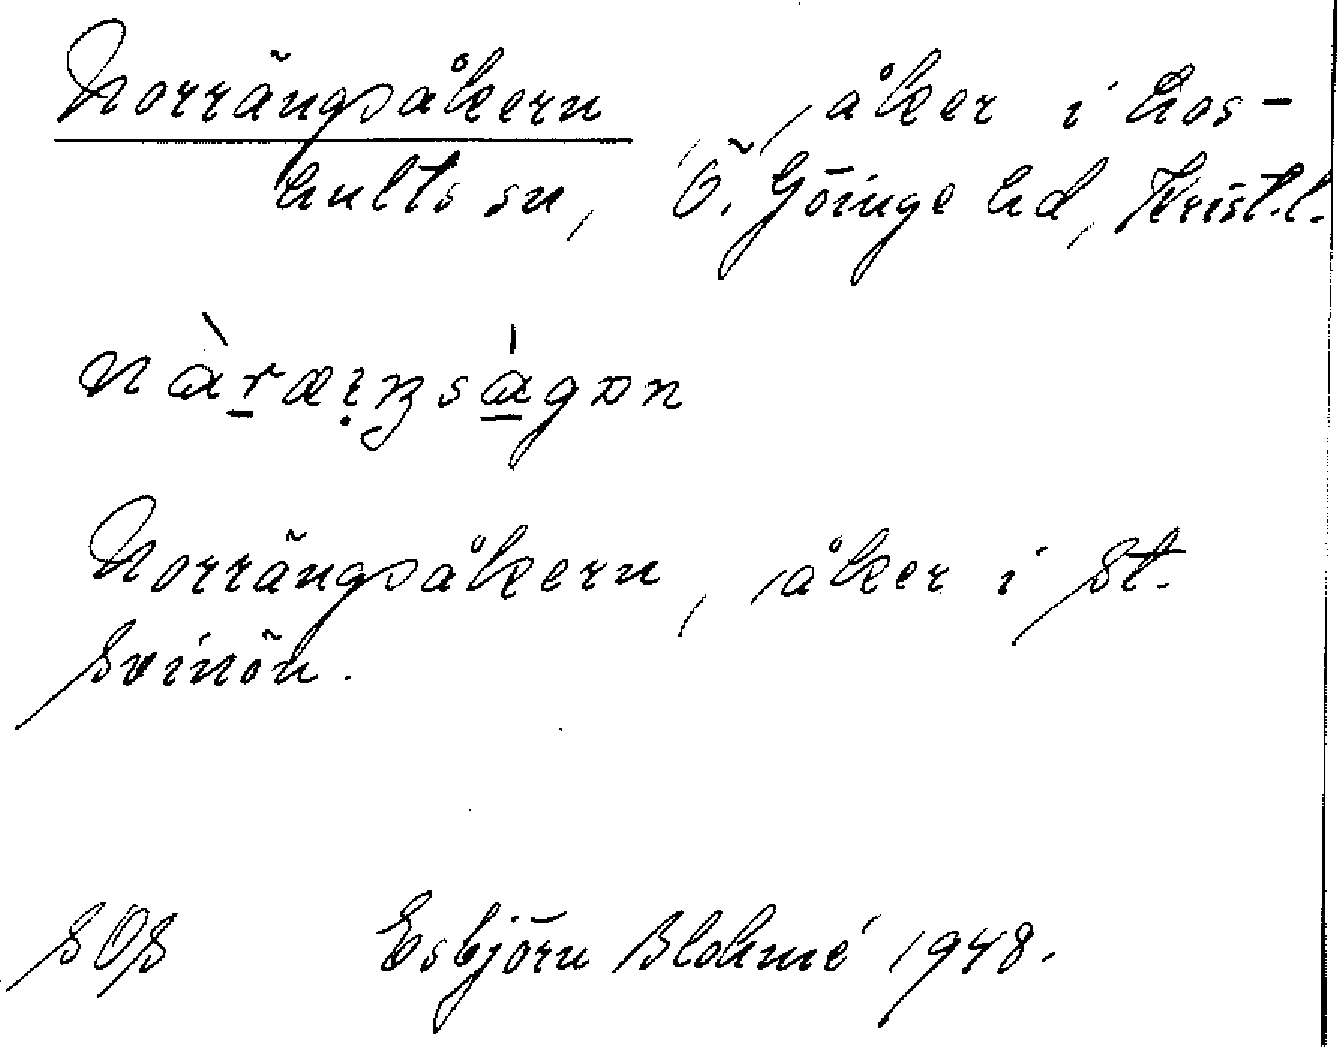 Norrängsåkern, åker i Los-
hults sn, Ö. Göinge hd, Krist.l.
Norrängsåkern, åker i St.
Svinön.
SOS Esbjörn Blohmé 1948.